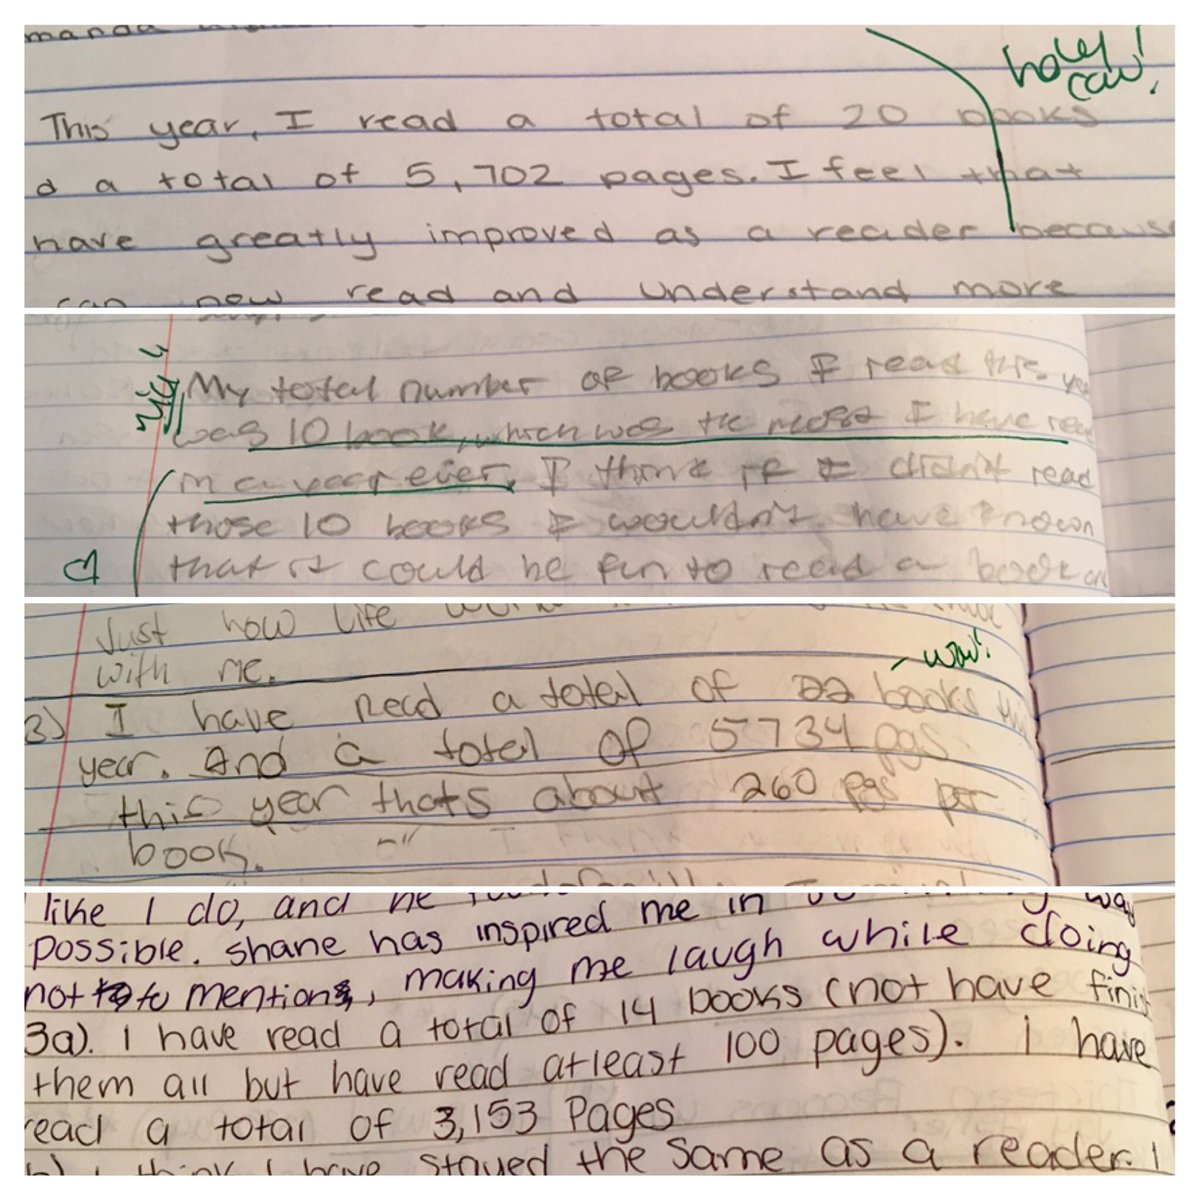 holy
cow!
This year, I read a total of 20 books
d a total of 5,702 pages. I feel that
have greatly improved as a reader because
can now read and understand more
My total number of books I read this
was 10 book, which was the most I have read
in a year ever. I think if I didn't read
those 10 books I wouldn't have known
that it could be fun to read a book
Just how life
with me.
wow!
3) I have Read a total of 22 books
year. And a total of 5734 pgs
this year thats about 260 pgs per
book.
like I do, and he
possible. Shane has inspired me in way
not to mention, making me laugh while doing
3a). I have read a total of 14 books (not have finis
them all but have read atleast 100 pages). I have
read a total of 3,153 Pages
b) I think I have stayed the same as a reader. I